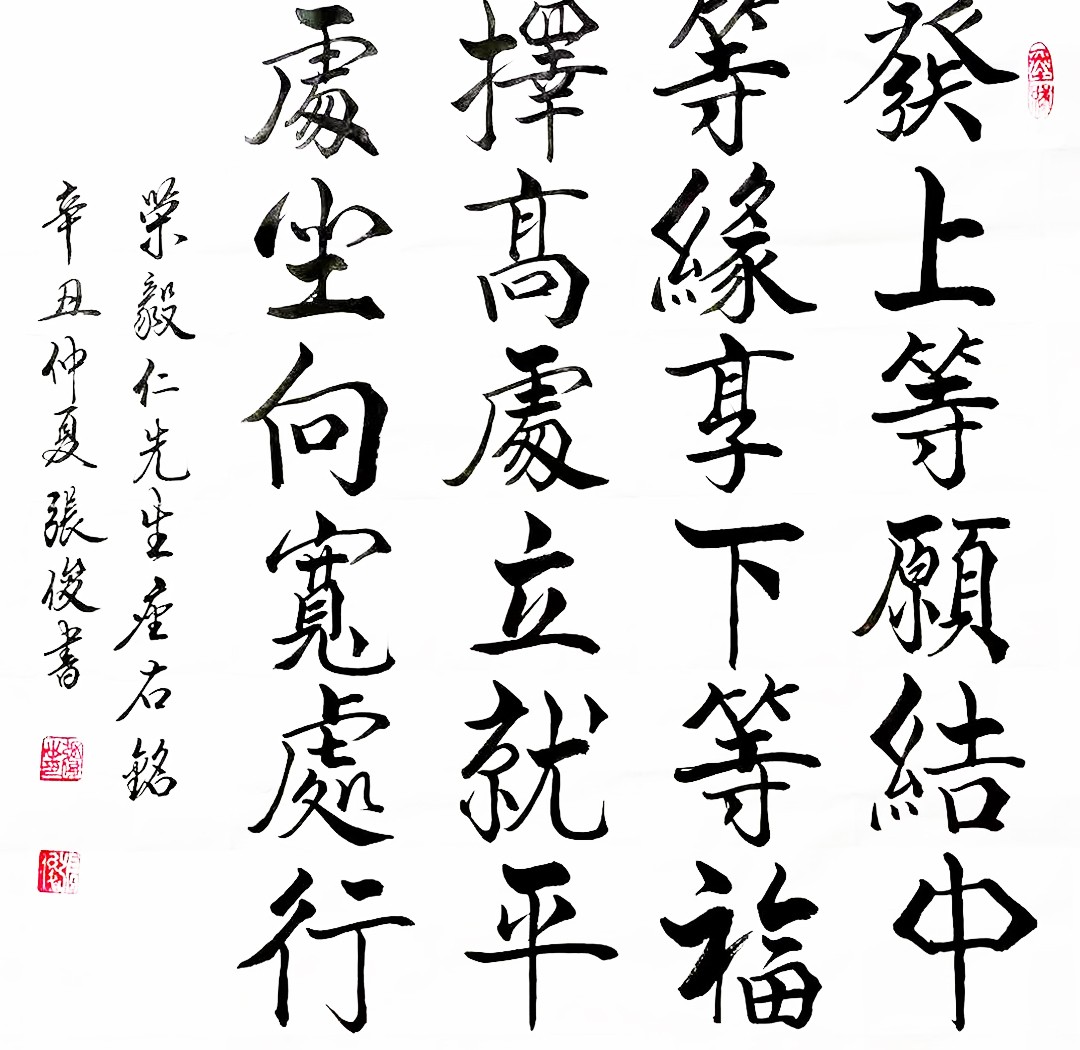 發上等願結中
等緣享下等福
擇高處立就平
處坐向寬處行
榮毅仁先生座右銘
辛丑仲夏張俊書